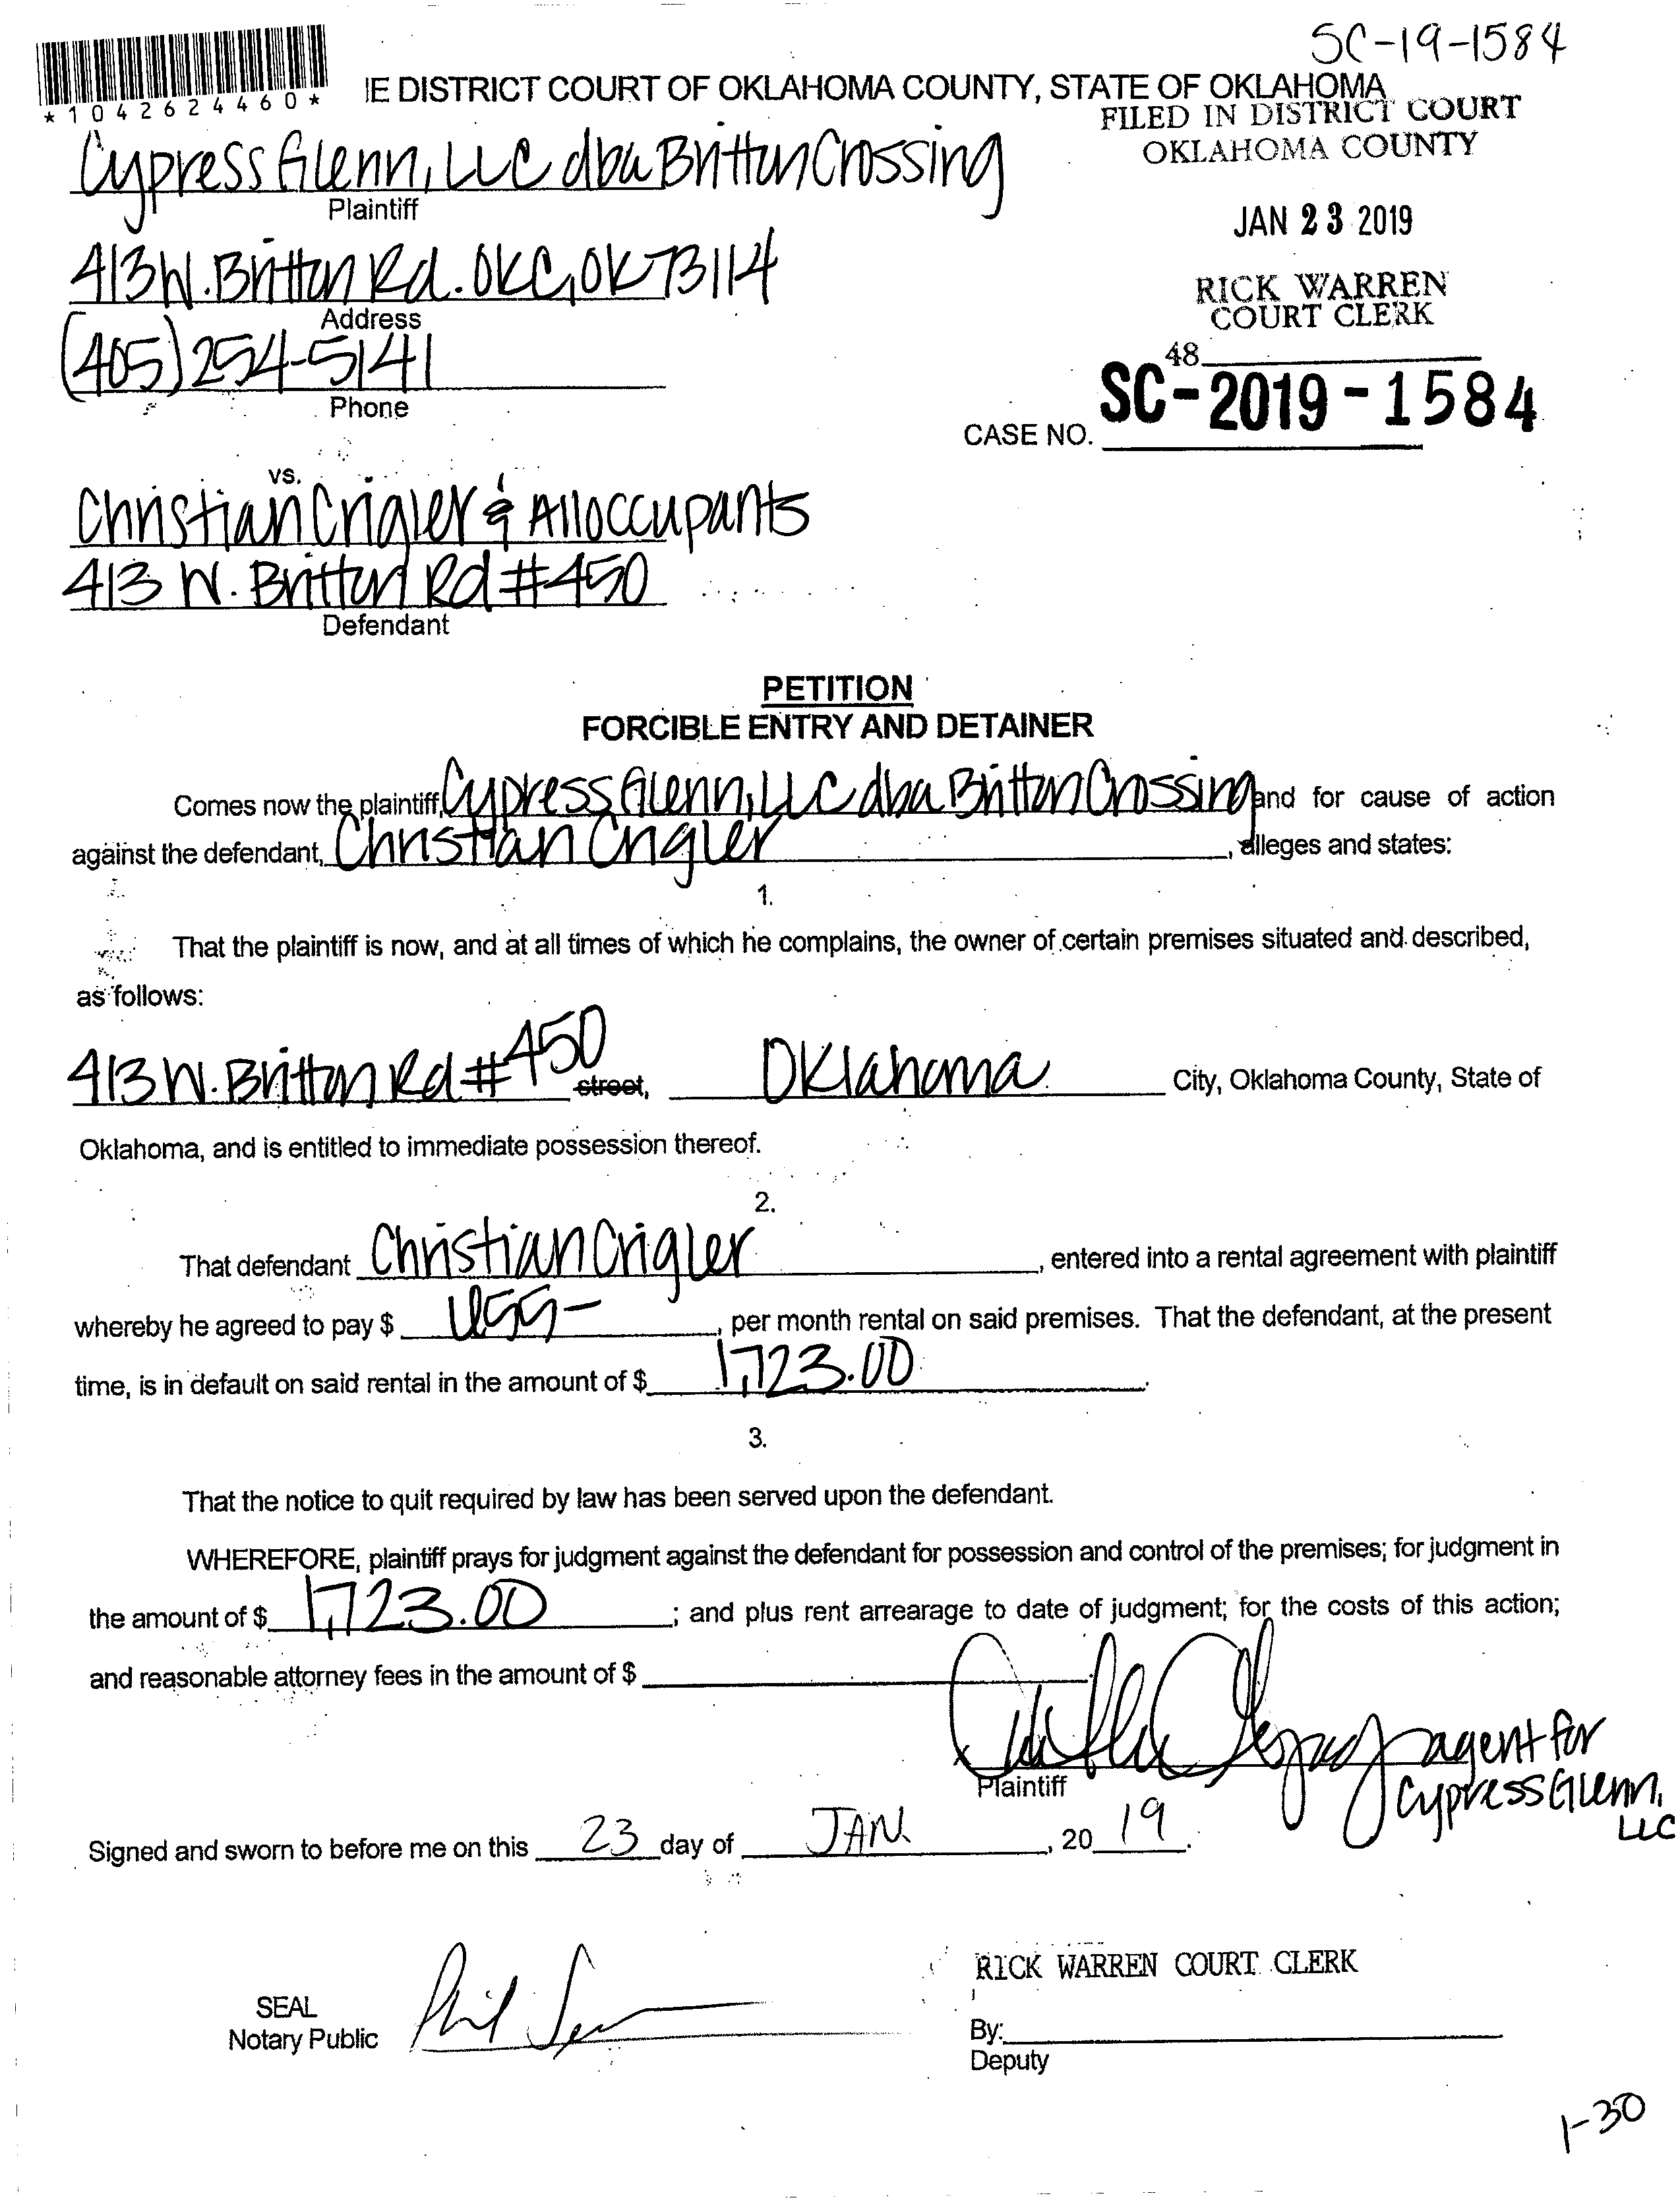 SC-19-1584
*1042624460*
IE DISTRICT COURT OF OKLAHOMA COUNTY, STATE OF OKLAHOMA
FILED IN DISTRICT COURT
OKLAHOMA COUNTY
Cypress Glenn, LLC dba Britton Crossing
Plaintiff
JAN 23 2019
413 W. Britton Rd. OKC, OK 73114
Address
RICK WARREN
COURT CLERK
(405) 254-5141
Phone
48
CASE NO. SC-2019-1584
vs.
Christian Crigler & All occupants
413 W. Britton Rd #450
Defendant
PETITION
FORCIBLE ENTRY AND DETAINER
Comes now the plaintiff, Cypress Glenn, LLC dba Britton Crossing and for cause of action
against the defendant, Christian Crigler, alleges and states:
1.
That the plaintiff is now, and at all times of which he complains, the owner of certain premises situated and described,
as follows:
413 W. Britton Rd #450 street, Oklahoma City, Oklahoma County, State of
Oklahoma, and is entitled to immediate possession thereof.
2.
That defendant Christian Crigler, entered into a rental agreement with plaintiff
whereby he agreed to pay $ , per month rental on said premises. That the defendant, at the present
time, is in default on said rental in the amount of $ 1,723.00.
3.
That the notice to quit required by law has been served upon the defendant.
WHEREFORE, plaintiff prays for judgment against the defendant for possession and control of the premises; for judgment in
the amount of $ 1,723.00; and plus rent arrearage to date of judgment; for the costs of this action;
and reasonable attorney fees in the amount of $
agent for
Plaintiff
Cypress Glenn,
LLC
Signed and sworn to before me on this 23 day of JAN., 2019.
RICK WARREN COURT CLERK
SEAL
Notary Public
By:
Deputy
1-30